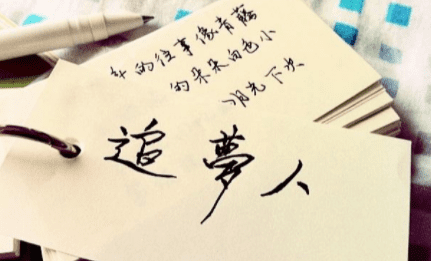 的往事像青藤
的朵朵白色小
月光下央
追夢人